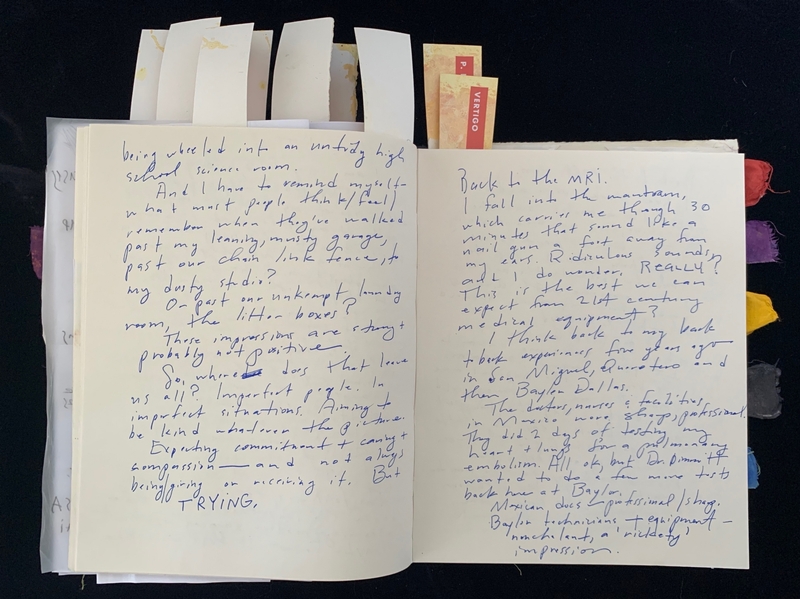 P.
VERTIGO
being wheeled into an untidy high
school science room.
And I have to remind myself—
what most people think/feel/
remember when they've walked
past my leaning, musty garage,
past our chain link fence, to
my dusty studio?
Or past our unkempt laundry
room, the litter boxes?
These impressions are strong +
probably not positive.
So, where does that leave
us all? Imperfect people. In
imperfect situations. Aiming to
be kind whatever the picture.
Expecting commitment + caring +
compassion — and not always
being/giving or receiving it. But
TRYING.
Back to the MRI.
I fall into the mantram,
which carries me though 30
minutes that sound like a
nail gun a foot away from
my ears. Ridiculous sounds,
and I do wonder, REALLY?
This is the best we can
expect from 21st century
medical equipment?
I think back to my back
to back experiences five years ago
in San Miguel, Queretero and
then Baylor Dallas.
The doctors, nurses + facilities
in Mexico were sharp, professional.
They did 2 days of testing my
heart + lungs for a pulmonary
embolism. All ok, but Dr. Dimmitt
wanted to do a few more tests
back here at Baylor.
Mexican docs — professional/sharp.
Baylor technicians + equipment —
nonchalant, a 'rickety'
impression.